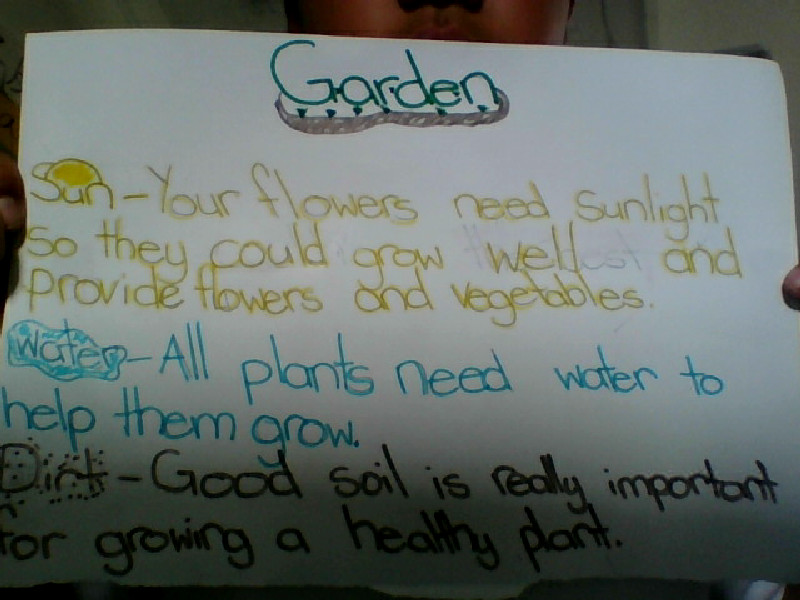 Garden
Sun - Your flowers need sunlight
so they could grow well and
provide flowers and vegetables.
Water - All plants need water to
help them grow.
Dirt - Good soil is really important
for growing a healthy plant.